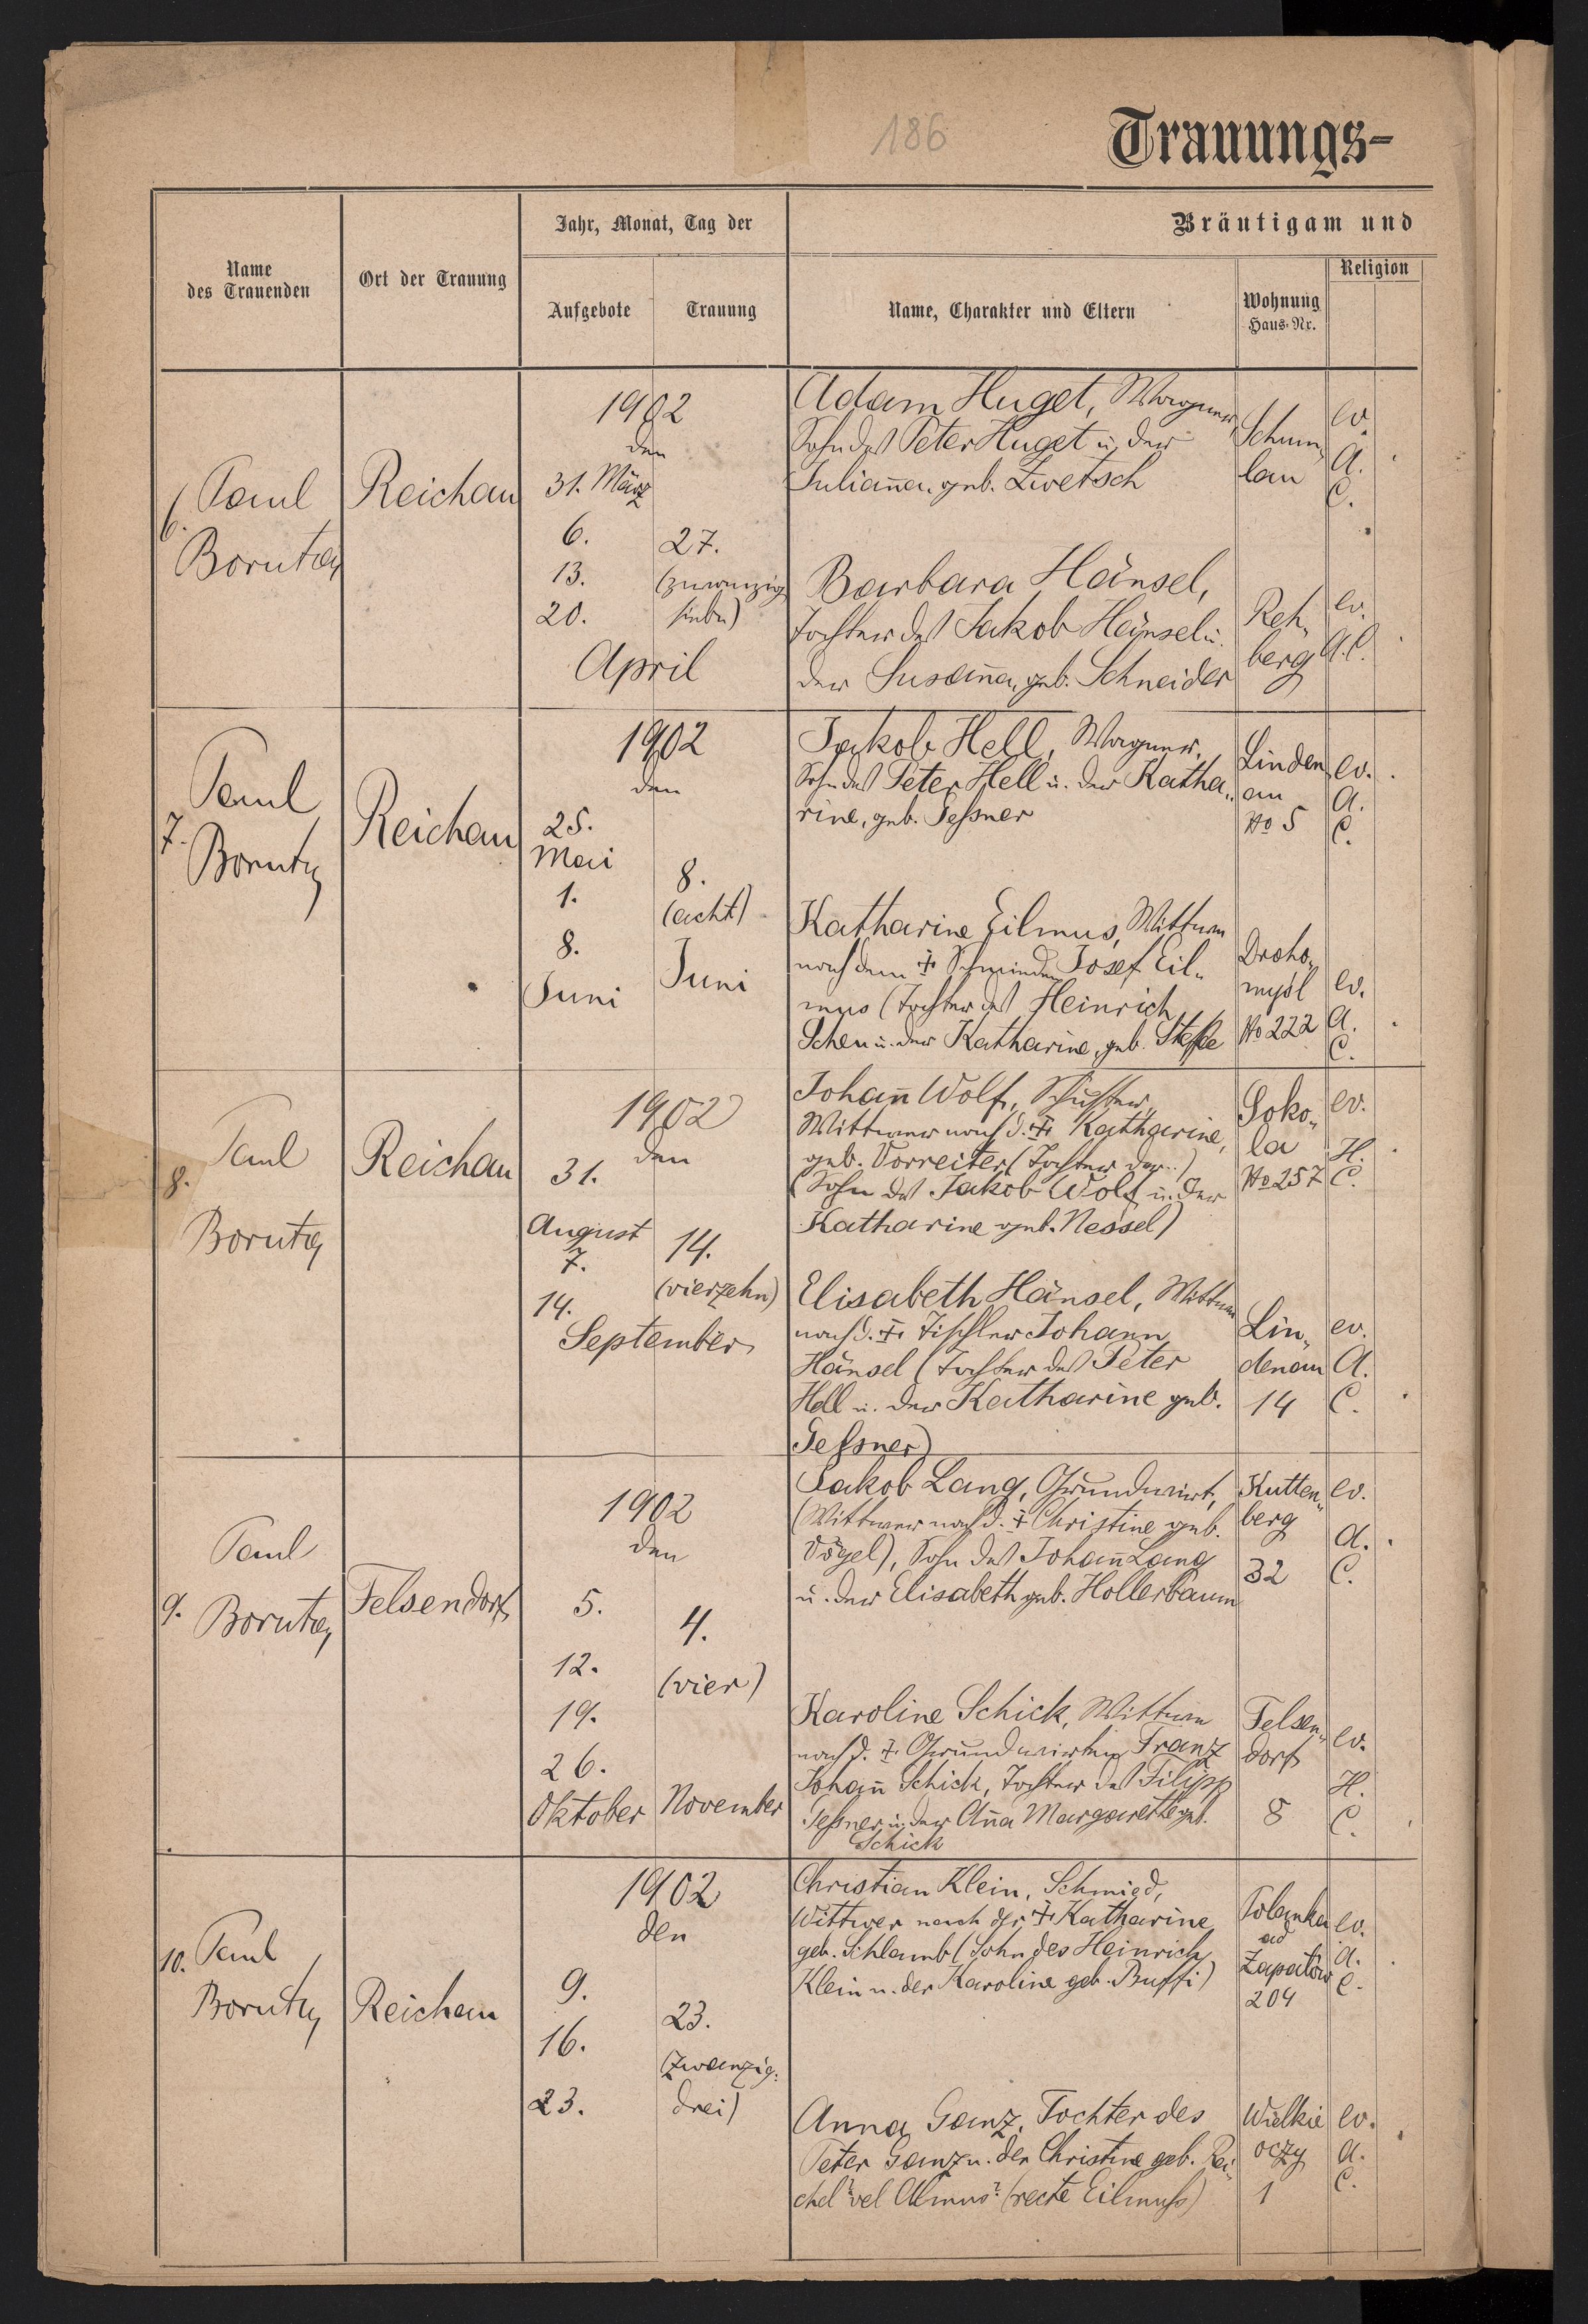 186
Trauungs-
Name
des Trauenden
Ort der Trauung
Jahr, Monat, Tag der
Aufgebote
Trauung
Bräutigam und
Name, Charakter und Eltern
Wohnung
Haus-Nr.
Religion
6. Paul
Boruta
Reichau
1902
den
31. März
6.
13.
20.
27.
(zwanzig
sieben)
April
Adam Huget, Wagner,
Sohn des Peter Huget u. der
Julian̄a, geb. Zwetsch
Schum„
lau
ev.
A.
C.
Barbara Hänsel,
Tochter des Jakob Hänsel u.
der Susan̄a, geb. Schneider
Reh„
berg
ev.
A.C.
7.
Paul
Boruta
Reichau
1902
den
25.
Mai
1.
8.
Juni
8.
(acht)
Juni
Jakob Hell, Wagner,
Sohn des Peter Hell u. der Katha„
rine, geb. Geßner
Linden„
au
No 5
ev.
A.
C.
Katharine Eilmus, Wittwe
nach dem † Josef Eil„
mus (Tochter des Heinrich
Scheu u. der Katharine, geb.
Droho„
mysl
No 222
ev.
A.
C.
8.
Paul
Boruta
Reichau
1902
den
31.
August
7.
14.
September
14.
(vierzehn)
Johan̄ Wolf, Schuster,
Wittwer nach d. † Katharine,
geb. Vorreiter (Tochter der..)
(Sohn des Jakob Wolf u. der
Katharine geb. Nessel)
Soko„
la
No 257
ev.
H.
C.
Elisabeth Hänsel, Wittwe
nach d. † Tischler Johann
Hänsel (Tochter des Peter
Hell u. der Katharine geb.
Geßner)
Lin„
denau
14
ev.
A.
C.
9.
Paul
Boruta
Felsendorf
1902
den
5.
12.
19.
26.
Oktober
4.
(vier)
November
Jakob Lang, Grundwirt,
(Wittwer nach d. † Christine geb.
Vögel), Sohn des Johan̄ Lang
u. der Elisabeth geb. Hollerbaum
Kutten„
berg
32
ev.
A.
C.
Karoline Schick, Wittwe
nach d. † Franz
Johan̄ Schick, Tochter des Filipp
Geßner u. der An̄a Margarethe geb.
Schick
Felsen„
dorf
8
ev.
H.
C.
10. Paul
Boruta
Reichau
1902
den
9.
16.
23.
23.
(zwanzig-
drei)
Christian Klein, Schmied,
Wittwer nach der † Katharine
geb. Schlamb (Sohn des Heinrich
Klein u. der Karoline geb. Buffi)
Polanka
ad
Zapałów
204
ev.
A.
C.
Anna Ganz, Tochter des
Peter Ganz u. der Christine geb. Rei„
chel? vel Almus? (recte Eilmuß)
Wielkie
oczy
1
ev.
A.
C.